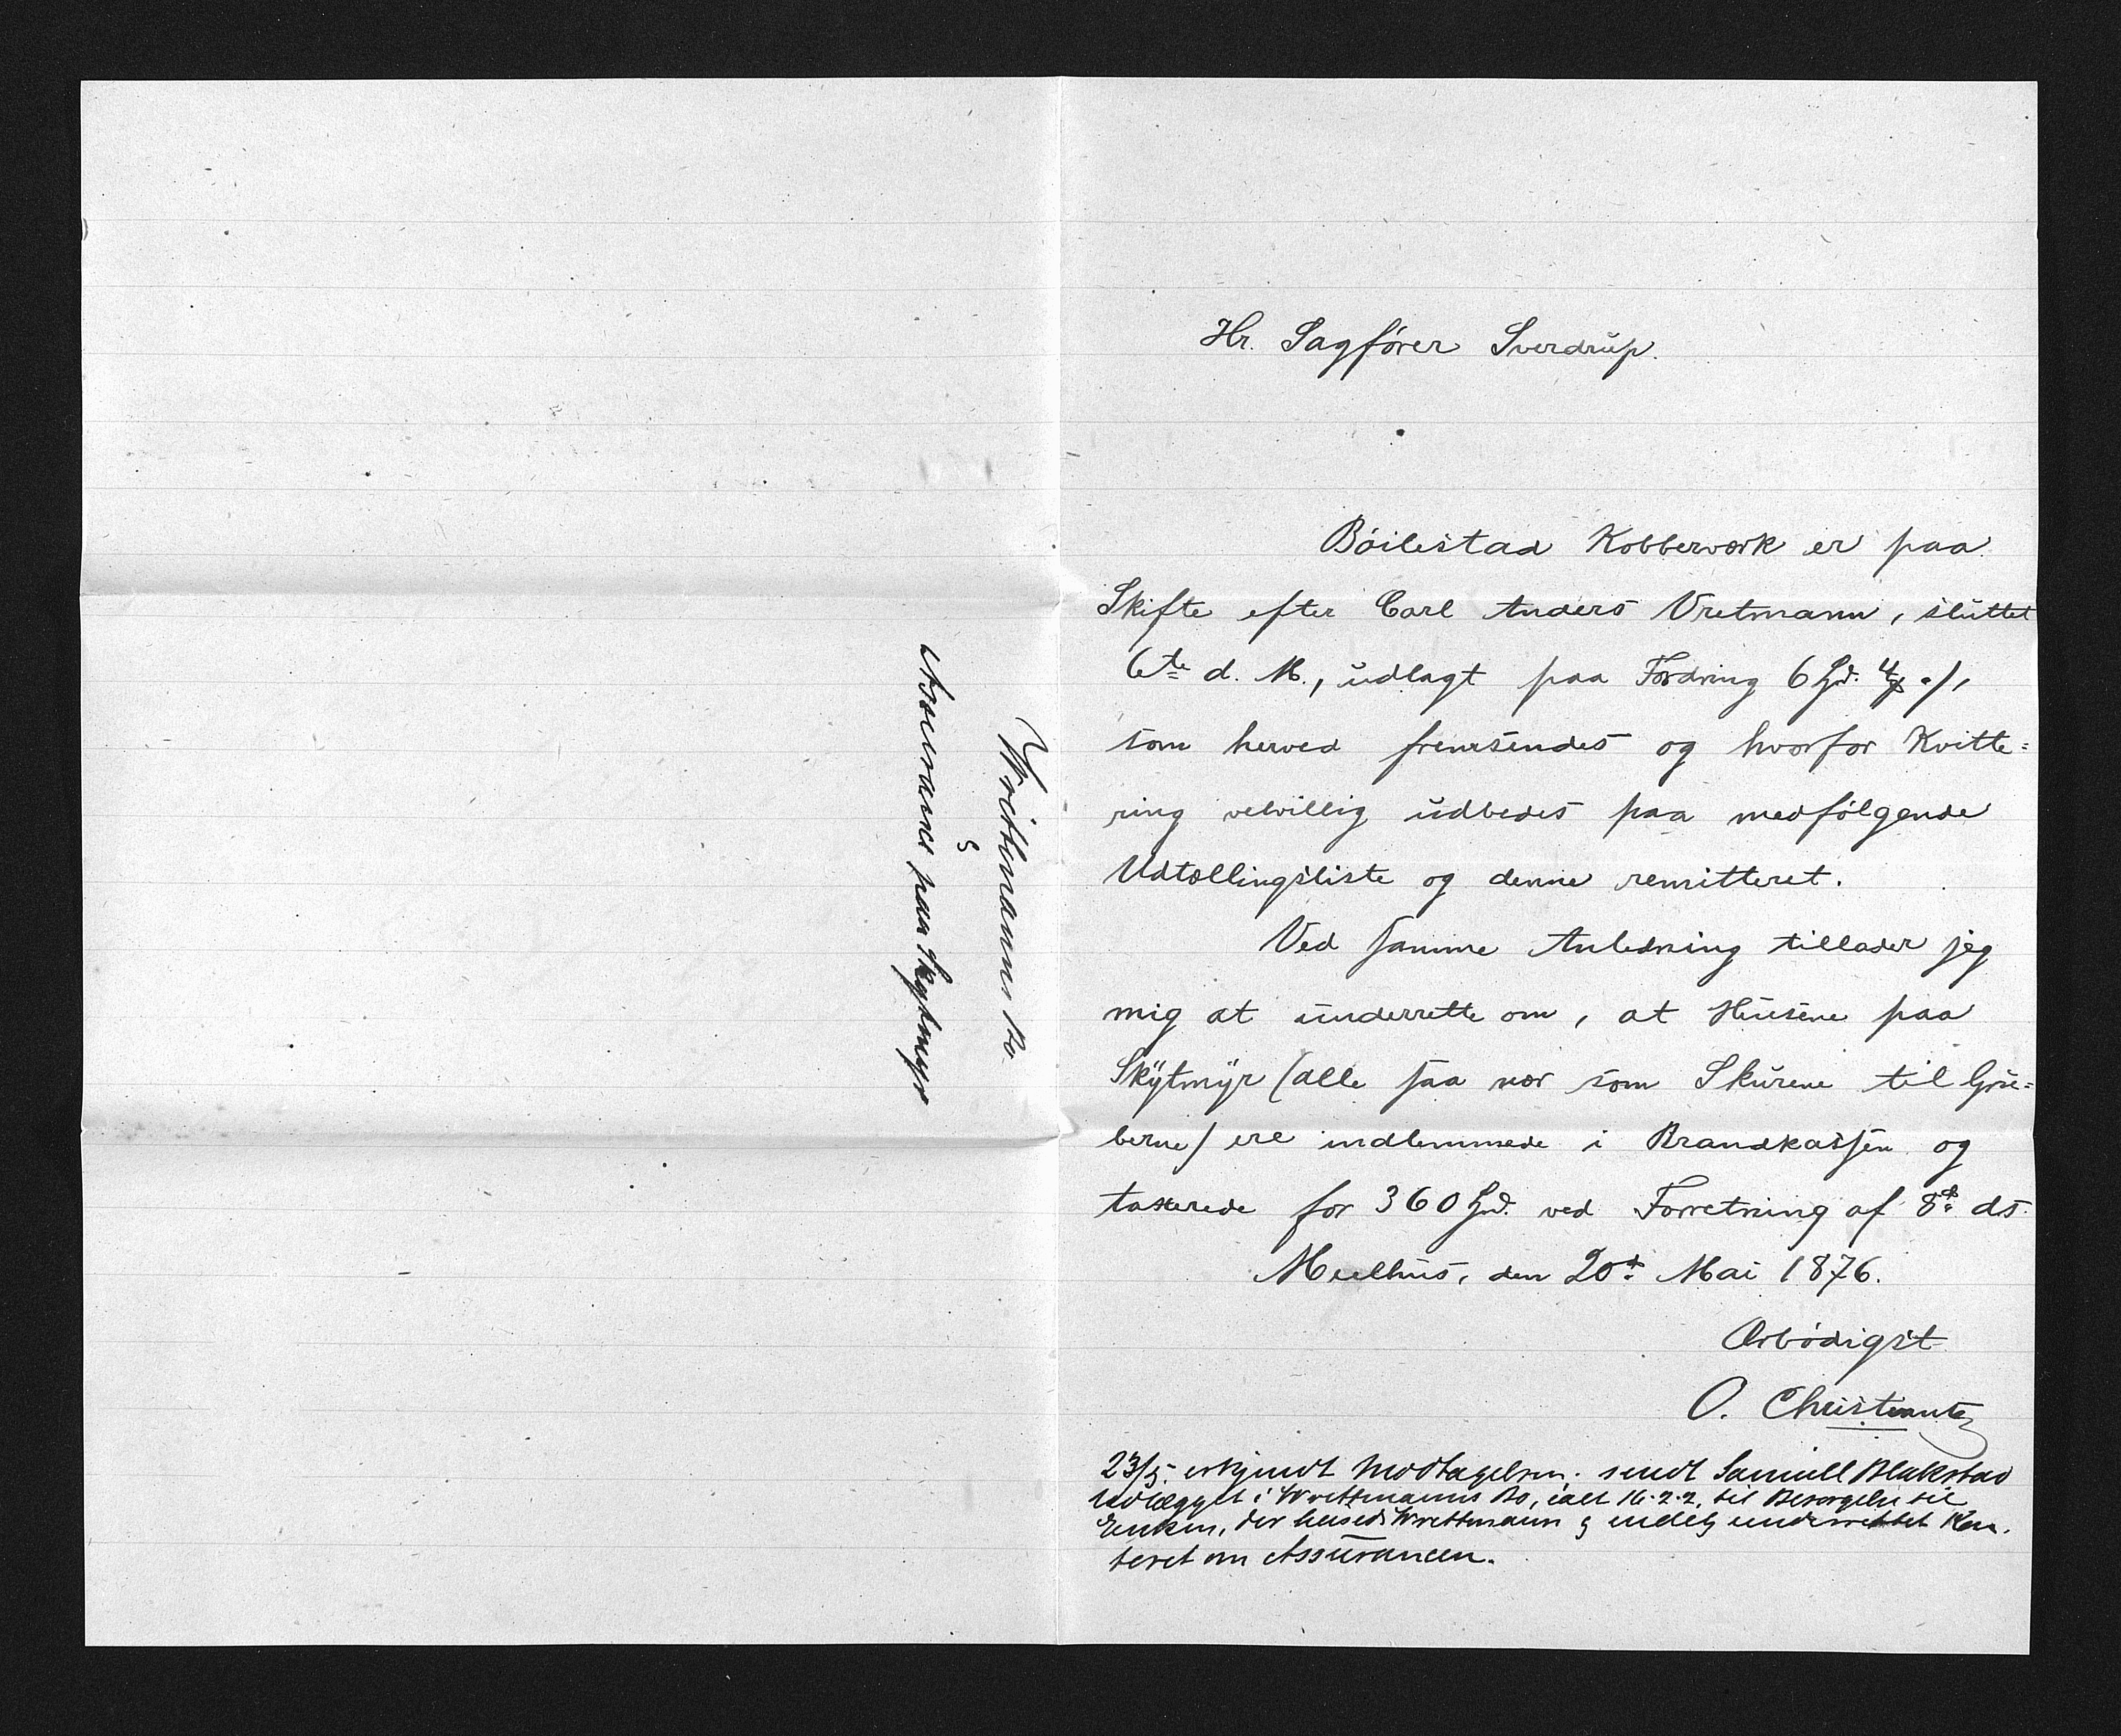 Wrettmanns Bo.
&
Assurance paa Skytmyr
Hr. Sagfører Sverdrup.
Bøilestad Kobberværk er paa
Skifte efter Carl Anders Vretmann, sluttet
6te d. M., udlagt paa Fordring 6 Spd.
som herved fremsendes og hvorfor Kvitte=
ring velvillig udbedes paa medfølgende
Udtællingsliste og denne remitteret.
Ved samme Anledning tillader jeg
mig at underrette om, at Husene paa
Skytmyr (alle saa nær som Skurene til Gru=
berne) ere indlemmede i Brandkassen og
taxerede for 360 Spd. ved Forretning af 8d: ds.
den 20d: Mai 1876.
Ærbødigst
O. Christiantz
23/5. erkjendt Modtagelsen. sendt Samuell Blakstad
Udlægget i Wrettmanns Bo, ialt 16.2.2. til Besørgelse til
Enken, der Wrettmann & underrettet Kon.
toret om Assurancen.